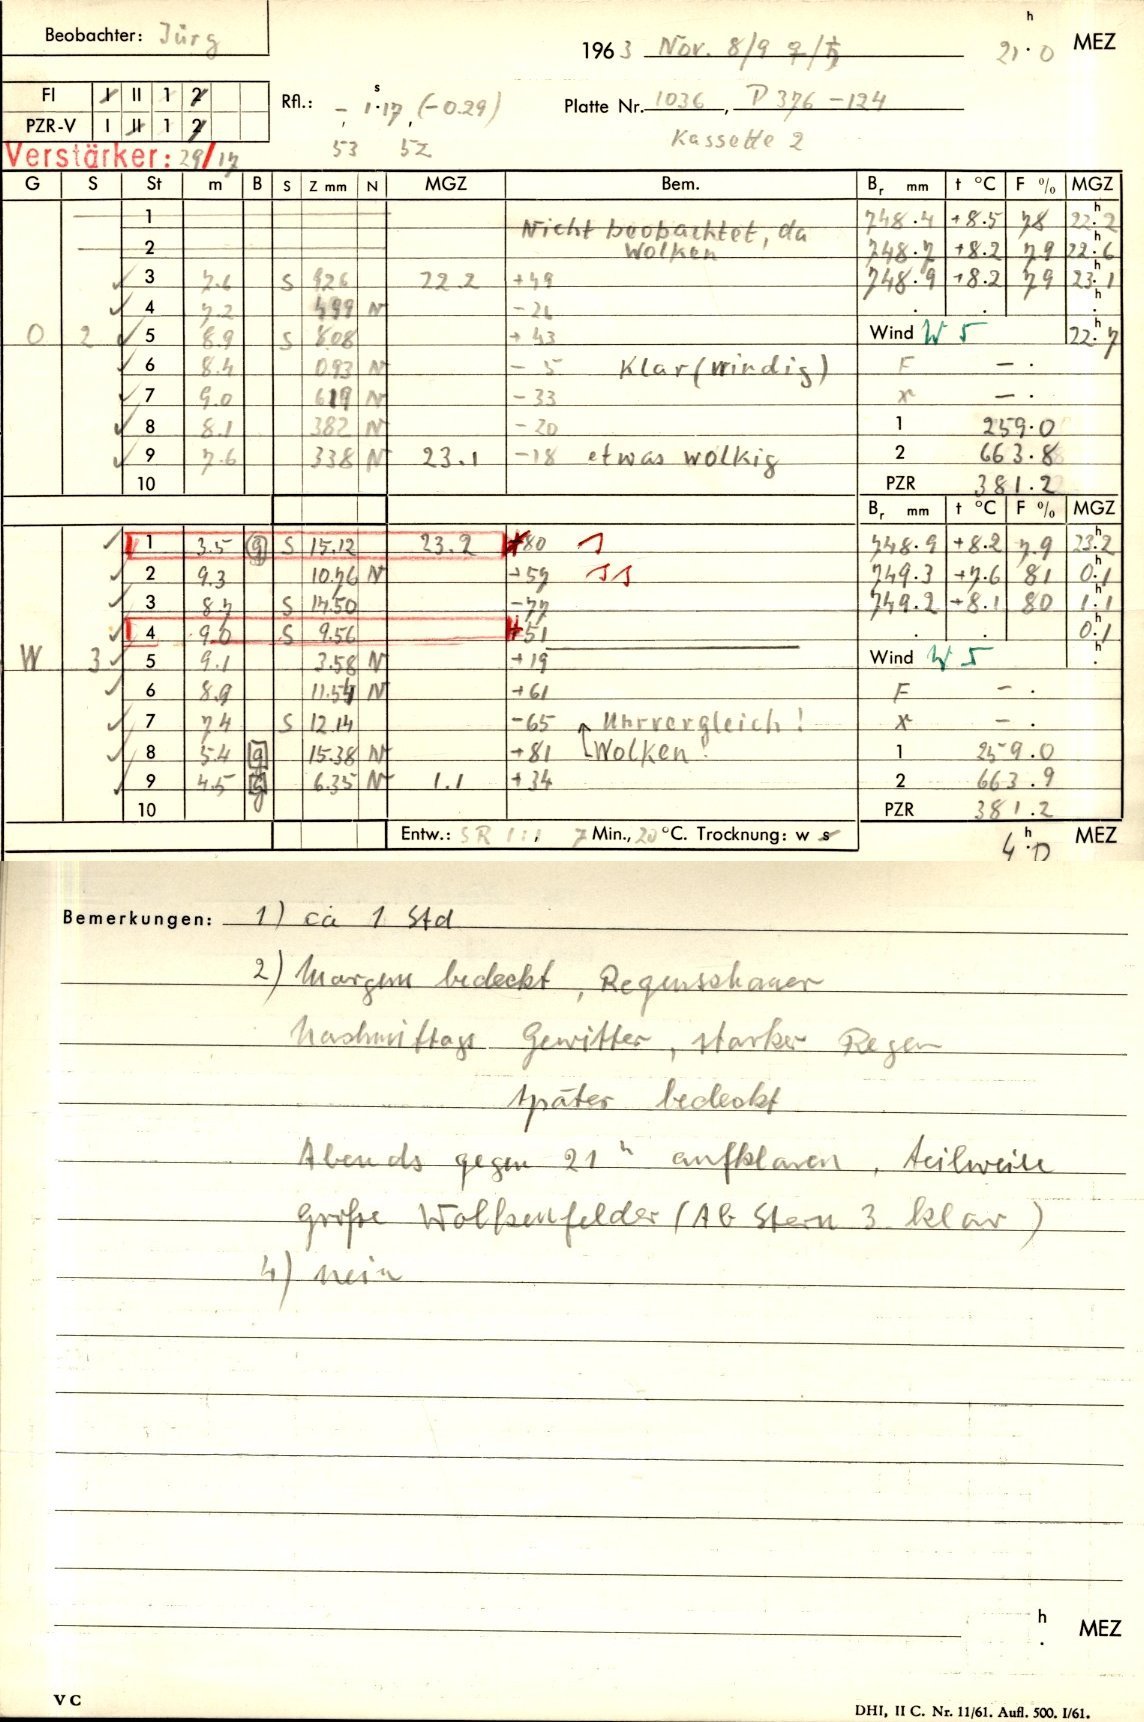 Beobachter: Jürg
1963 Nov. 8/9 ♀/♄ 21h.0 MEZ
FI I II 1 2
PZR-V I II 1 2
Rfl.: - 1s.17 (-0.29)
53 52
Platte Nr. 1036, P 376-124
Kassette 2
Verstärker: 29/17
G S St m B S Z mm N MGZ Bem. Br mm t °C F % MGZ
1 Nicht beobachtet, da 748.4 +8.5 78 22h.2
2 Wolken 748.7 +8.2 79 22h.6
3 7.6 S 926 22.2 +49 748.9 +8.2 79 23h.1
4 7.2 499 N -26 . . h.
O 2 5 8.9 S 808 +43 Wind W 5 22h.7
6 8.4 093 N -5 Klar (windig) F - .
7 9.0 619 N -33 x - .
8 8.1 382 N -20 1 259.0
9 7.6 338 N 23.1 -18 etwas wolkig 2 663.8
10 PZR 381.2
Br mm t °C F % MGZ
1 3.5 g S 15.12 23.2 80 1 748.9 +8.2 79 23h.2
2 9.3 10.76 N +57 11 749.3 +7.6 81 0h.1
3 8.7 S 14.50 -77 749.2 +8.1 80 1h.1
4 9.0 S 9.56 51 . . 0h.1
W 3 5 9.1 3.58 N +19 Wind W 5 h.
6 8.9 11.54 N +61 F - .
7 7.4 S 12.14 -65 Uhrvergleich! x - .
8 5.4 g 15.38 N +81 Wolken! 1 259.0
9 4.5 g 6.35 N 1.1 +34 2 663.9
10 PZR 381.2
Entw.: SR 1:1, 7 Min., 20 °C. Trocknung: w s
4h.0 MEZ
Bemerkungen: 1) ca 1 Std
2) Morgens bedeckt, Regenschauer
Nachmittags Gewitter, starker Regen
später bedeckt
Abends gegen 21h aufklaren, teilweise
große Wolkenfelder (Ab Stern 3 klar)
4) nein
h. MEZ
V C
DHI, II C. Nr. 11/61. Aufl. 500. I/61.